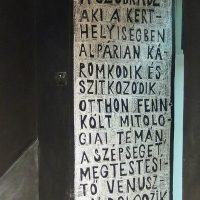 A SZOBRÁSZ
AKI A KERT-
HELYISÉGBEN
ALPÁRIAN KÁ-
ROMKODIK ÉS
SZITKOZÓDIK,
OTTHON FENN-
KÖLT MITOLÓ-
GIAI TÉMÁN,
A SZÉPSÉGET
MEGTESTESÍ-
TŐ VÉNUSZ-